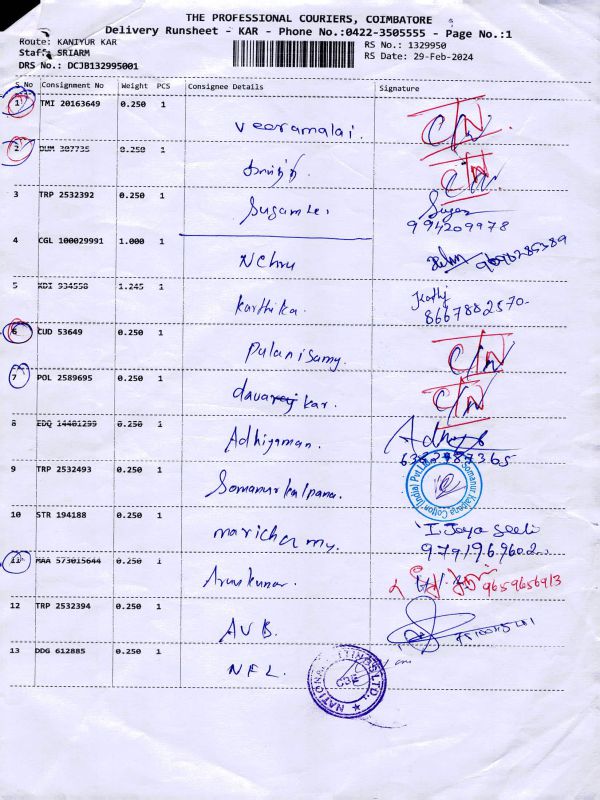 THE PROFESSIONAL COURIERS, COIMBATORE
Delivery Runsheet - KAR - Phone No.:0422-3505555 - Page No.:1
Route: KANIYUR KAR RS No.: 1329950
Staff: SRIARM RS Date: 29-Feb-2024
DRS No.: DCJB132995001
S No Consignment No Weight PCS Consignee Details Signature
1 TMI 20163649 0.250 1
Veeramalai. C/N
2 DUM 307735 0.250 1
C/N
3 TRP 2532392 0.250 1
994209978
4 CGL 100029991 1.000 1
Nehru
5 KDI 934558 1.245 1
Karthika. 8667882570
6 CUD 53649 0.250 1
Palanisamy. C/N
7 POL 2589695 0.250 1
kar. C/N
8 EDQ 14401299 0.250 1
Adhiyaman.
9 TRP 2532493 0.250 1
Somanur kalpana. Somanur Kalpana Cotton (India) Pvt. Ltd.
10 STR 194188 0.250 1
9791969602
11 MAA 573015644 0.250 1
Arunkumar. 9659656913
12 TRP 2532394 0.250 1
AVB.
13 DDG 612885 0.250 1
NFL. CBE